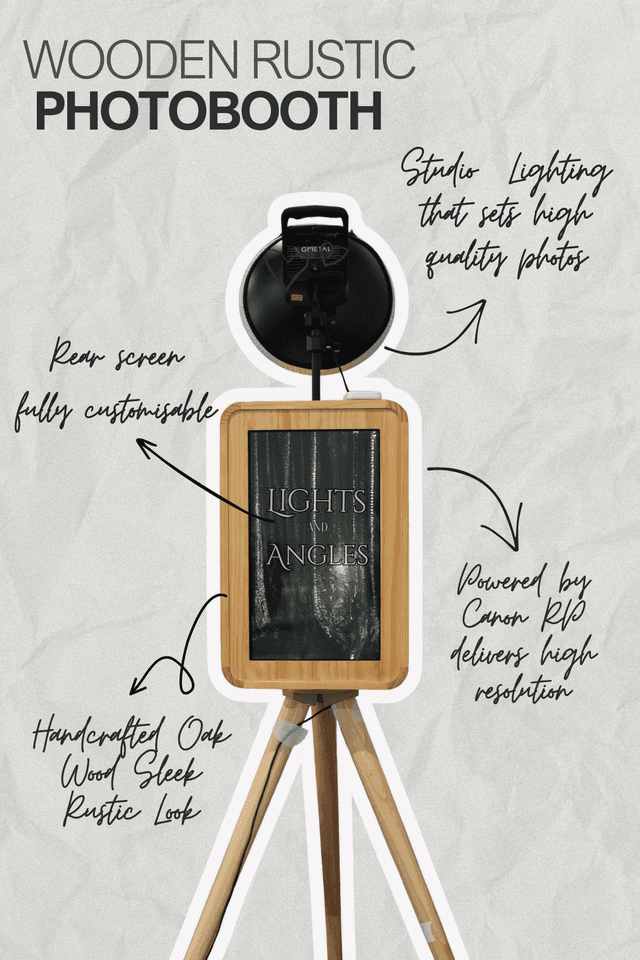 WOODEN RUSTIC
PHOTOBOOTH
Studio Lighting
that sets high
quality photos
GMETAL
Rear screen
fully customisable
LIGHTS
AND
ANGLES
Powered by
Canon RP
delivers high
resolution
Handcrafted Oak
Wood Sleek
Rustic Look